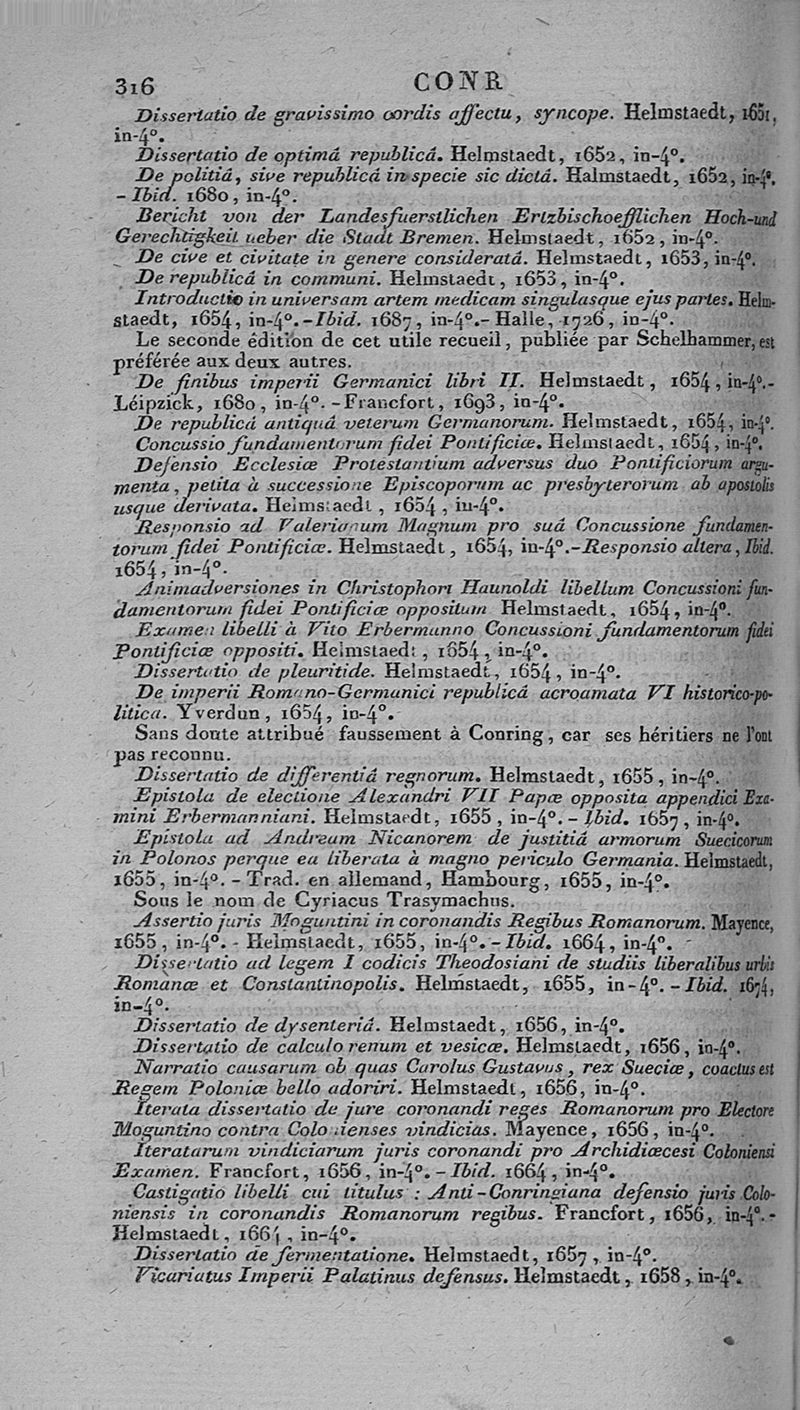 316 CONR
Dissertatio de gravissimo cordis affectu, syncope. Helmstaedt, 1651,
in-4°.
Dissertatio de optimâ republicâ. Helmstaedt, 1652, in-4°.
De politiâ, sive republicâ in specie sic dictâ. Halmstaedt, 1652, in-4°.
- Ibid. 1680, in-4°.
Bericht von der Landesfuerstlichen Ertzbischoefflichen Hoch-und
Gerechtigkeit ueber die Stadt Bremen. Helmstaedt, 1652, in-4°.
De cive et civitate in genere consideratâ. Helmstaedt, 1653, in-4°.
De republicâ in communi. Helmstaedt, 1653, in-4°.
Introductio in universam artem medicam singulasque ejus partes. Helm-
staedt, 1654, in-4°.-Ibid. 1687, in-4°.- Halle, 1726, in-4°.
Le seconde édition de cet utile recueil, publiée par Schelhammer, est
préférée aux deux autres.
De finibus imperii Germanici libri II. Helmstaedt, 1654, in-4°.-
Léipzick, 1680, in-4°. -Francfort, 1693, in-4°.
De republicâ antiquâ veterum Germanorum. Helmstaedt, 1654, in-4°.
Concussio fundamentorum fidei Pontificiæ. Helmstaedt, 1654, in-4°.
Defensio Ecclesiæ Protestantium adversus duo Pontificiorum argu-
menta, petita à successione Episcoporum ac presbyterorum ab apostolis
usque derivata. Helmstaedt, 1654, in-4°.
Responsio ad Valerianum Magnum pro suâ Concussione fundamen-
torum fidei Pontificiæ. Helmstaedt, 1654, in-4°.-Responsio altera, Ibid.
1654, in-4°.
Animadversiones in Christophori Haunoldi libellum Concussioni fun-
damentorum fidei Pontificiæ oppositum Helmstaedt, 1654, in-4°.
Examen libelli à Vito Erbermanno Concussioni fundamentorum fidei
Pontificiæ oppositi. Helmstaedt, 1654, in-4°.
Dissertatio de pleuritide. Helmstaedt, 1654, in-4°.
De imperii Romano-Germanici republicâ acroamata VI historico-po-
litica. Yverdun, 1654, in-4°.
Sans doute attribué faussement à Conring, car ses héritiers ne l'ont
pas reconnu.
Dissertatio de differentiâ regnorum. Helmstaedt, 1655, in-4°.
Epistola de electione Alexandri VII Papæ opposita appendici Exa-
mini Erbermanniani. Helmstaedt, 1655, in-4°. - Ibid. 1657, in-4°.
Epistola ad Andream Nicanorem de justitiâ armorum Suecicorum
in Polonos perque ea liberata à magno periculo Germania. Helmstaedt,
1655, in-4°. - Trad. en allemand, Hambourg, 1655, in-4°.
Sous le nom de Cyriacus Trasymachus.
Assertio juris Moguntini in coronandis Regibus Romanorum. Mayence,
1655, in-4°. - Helmstaedt, 1655, in-4°. - Ibid. 1664, in-4°.
Dissertatio ad legem I codicis Theodosiani de studiis liberalibus urbis
Romanæ et Constantinopolis. Helmstaedt, 1655, in-4°. - Ibid. 1674,
in-4°.
Dissertatio de dysenteriâ. Helmstaedt, 1656, in-4°.
Dissertatio de calculo renum et vesicæ. Helmstaedt, 1656, in-4°.
Narratio causarum ob quas Carolus Gustavus, rex Sueciæ, coactus est
Regem Poloniæ bello adoriri. Helmstaedt, 1656, in-4°.
Iterata dissertatio de jure coronandi reges Romanorum pro Electore
Moguntino contra Colonienses vindicias. Mayence, 1656, in-4°.
Iteratarum vindiciarum juris coronandi pro Archidiœcesi Coloniensi
Examen. Francfort, 1656, in-4°. - Ibid. 1664, in-4°.
Castigatio libelli cui titulus : Anti-Conringiana defensio juris Colo-
niensis in coronandis Romanorum regibus. Francfort, 1656, in-4°. -
Helmstaedt, 1664, in-4°.
Dissertatio de fermentatione. Helmstaedt, 1657, in-4°.
Vicariatus Imperii Palatinus defensus. Helmstaedt, 1658, in-4°.